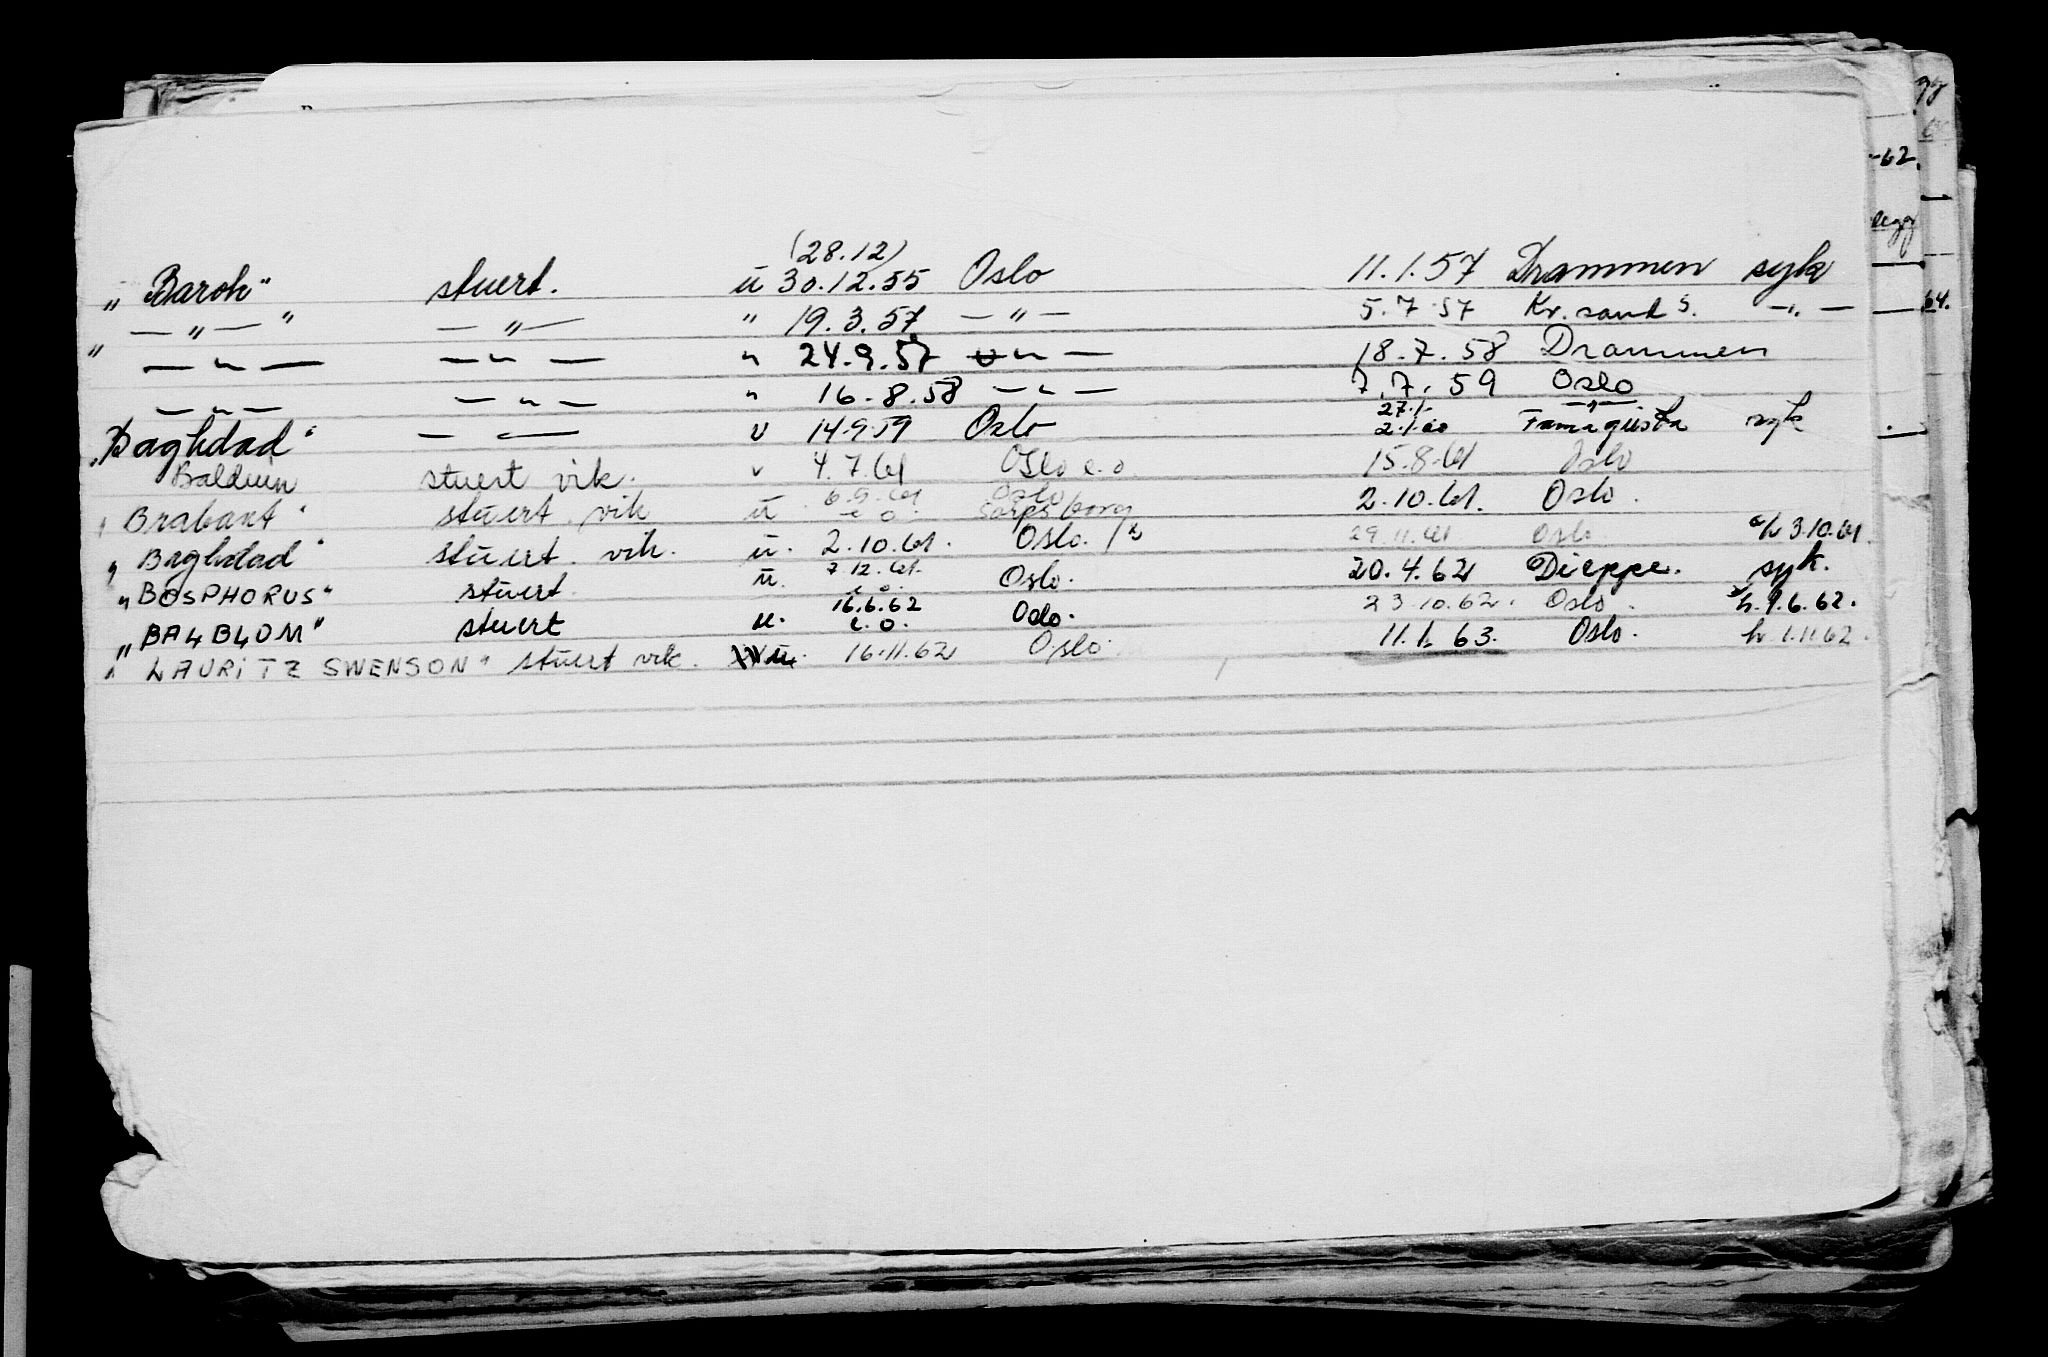 (28.12)
„Baroh" stuert. ū 30.12.55 Oslo 11.1.57 Drammen syk
— " — " — " — " 19.3.57 — " — 5.7.57 Kr.sand S. — " —
" — " — — " — " 24.9.57 — " — 18.7.58 Drammen
— " — — " — " 16.8.58 — " — 7.7.59 Oslo
„Baghdad" — " — v 14.9.59 Oslo 27/1- 2.1.60 Famagusta syk
Balduin stuert vik. v 4.7.61 Oslo e.o. 15.8.61 Oslo
„Brabant" stuert. vik ū 6.9.61 e.o. Oslo Sarpsborg 2.10.61. Oslo.
„Baghdad" stuert. vik. ū. 2.10.61. Oslo. 29.11.61 Oslo h 3.10.61.
„BOSPHORUS" stuert. ū. 7.12.61. e.o. Oslo. 20.4.62 Dieppe. syk.
„BALBLOM" stuert u. 16.6.62 e.o. Oslo. 23.10.62. Oslo. h. 9.6.62.
„LAURITZ SWENSON" stuert vik. ū. 16.11.62 Oslo 11.1.63. Oslo. h. 1.11.62.
-62.
legg
64.